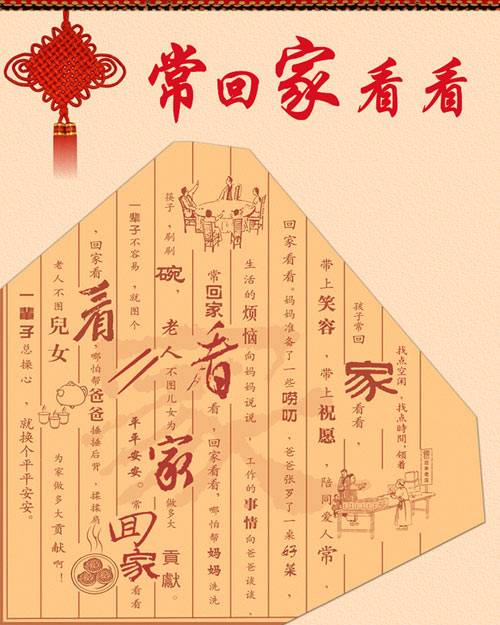 常回家看看
找点空闲，找点時間，领着
孩子常回家看看，
带上笑容，带上祝愿，陪同爱人常，
回家看看。妈妈准备了一些唠叨，爸爸张罗了一桌好菜，
生活的烦恼向妈妈说说，工作的事情向爸爸谈谈，
常回家看看，回家看看，哪怕帮妈妈洗洗
筷子，刷刷碗，老人不图儿女为家做多大贡獻。
一辈子不容易，就图个平平安安。常回家看看
，回家看看，哪怕帮爸爸捶捶后背，揉揉肩
老人不图兒女为家做多大贡献啊！
一輩子总操心，就换个平平安安。